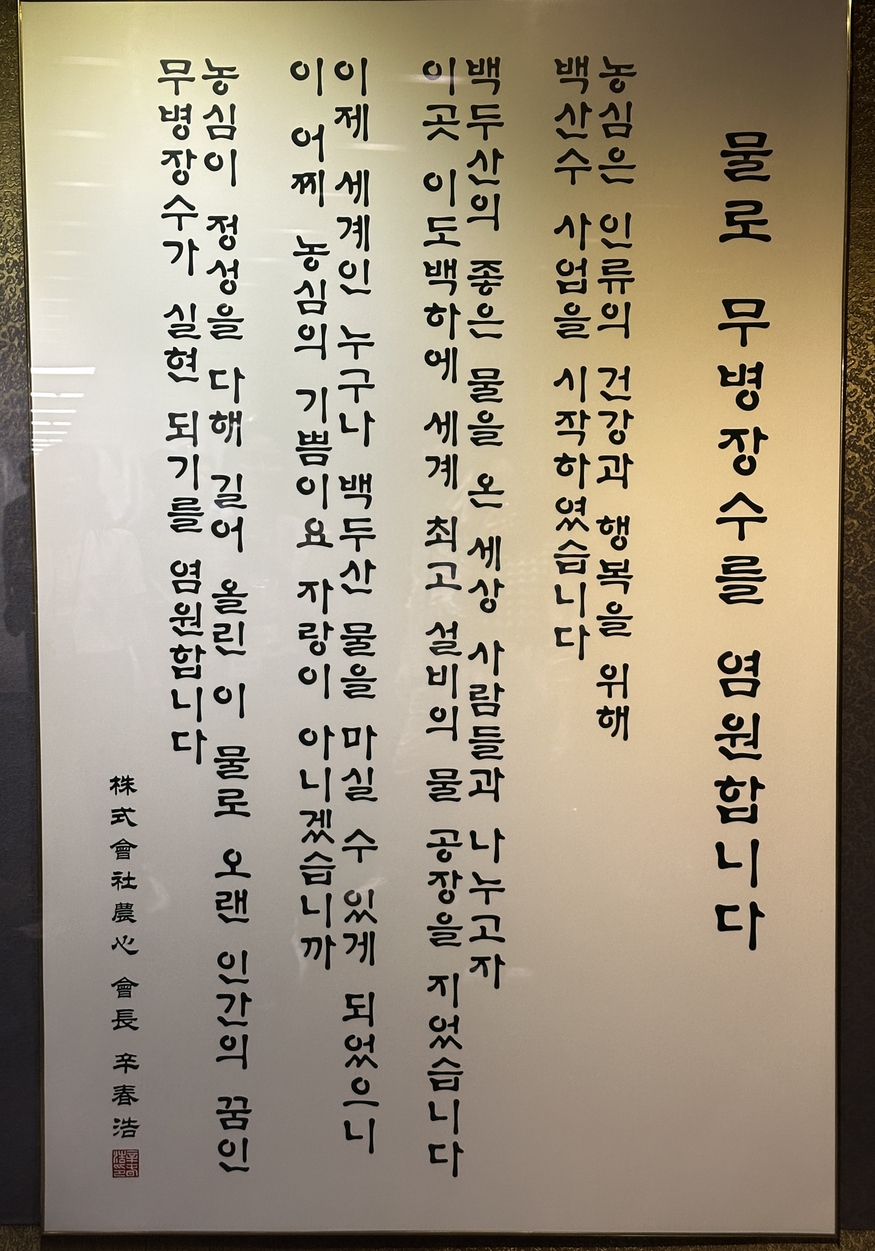 물로 무병장수를 염원합니다
농심은 인류의 건강과 행복을 위해
백산수 사업을 시작하였습니다
백두산의 좋은 물을 온 세상 사람들과 나누고자
이곳 이도백하에 세계 최고 설비의 물 공장을 지었습니다
이제 세계인 누구나 백두산 물을 마실 수 있게 되었으니
이 어찌 농심의 기쁨이요 자랑이 아니겠습니까
농심이 정성을 다해 길어 올린 이 물로 오랜 인간의 꿈인
무병장수가 실현 되기를 염원합니다
株式會社農心 會長 辛春浩